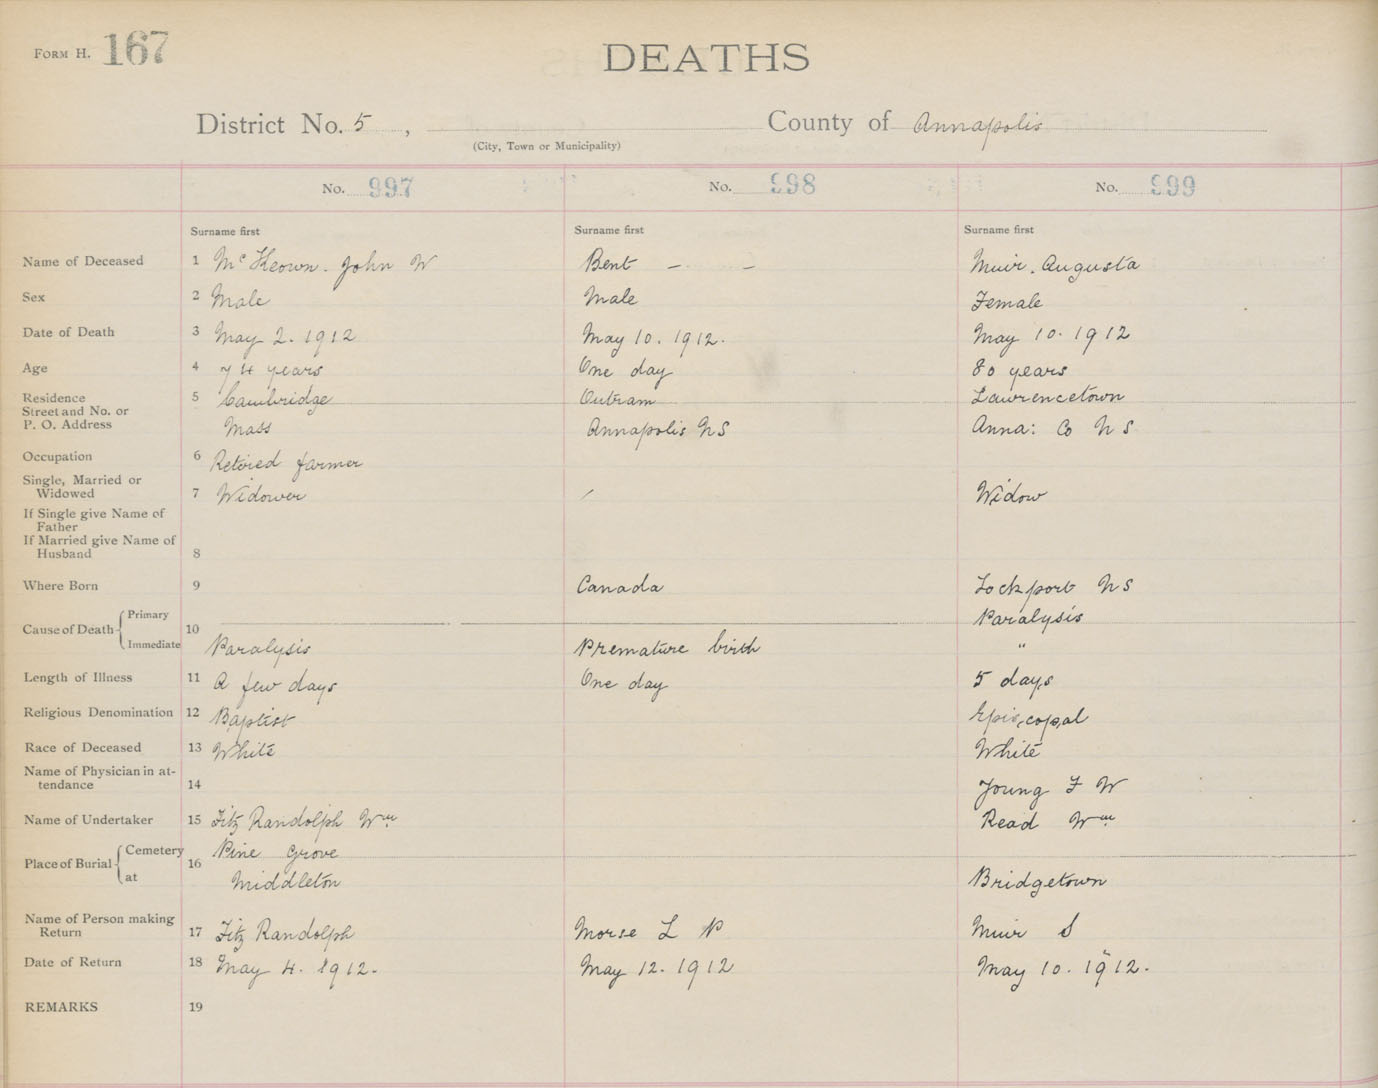 FORM H. 167
DEATHS
District No. 5 , County of Annapolis
(City, Town or Municipality)
No. 997 No. 998 No. 999
Surname first Surname first Surname first
Name of Deceased 1 McKeown. John W Bent — — Muir. Augusta
Sex 2 Male Male Female
Date of Death 3 May 2. 1912 May 10. 1912. May 10. 1912
Age 4 74 years One day 80 years
Residence 5 Cambridge Outram Lawrencetown
Street and No. or
P. O. Address Mass Annapolis NS Anna: Co NS
Occupation 6 Retired farmer
Single, Married or
Widowed 7 Widower / Widow
If Single give Name of
Father
If Married give Name of
Husband 8
Where Born 9 Canada Lockport NS
Cause of Death Primary 10 Paralysis
Immediate Paralysis Premature birth "
Length of Illness 11 A few days One day 5 days
Religious Denomination 12 Baptist Episcopal
Race of Deceased 13 White White
Name of Physician in at-
tendance 14 Young F W
Name of Undertaker 15 Fitz Randolph Wm Read Wm
Place of Burial Cemetery 16 Pine Grove
at Middleton Bridgetown
Name of Person making
Return 17 Fitz Randolph Morse L P Muir S
Date of Return 18 May 4. 1912. May 12. 1912 May 10. 1912.
REMARKS 19